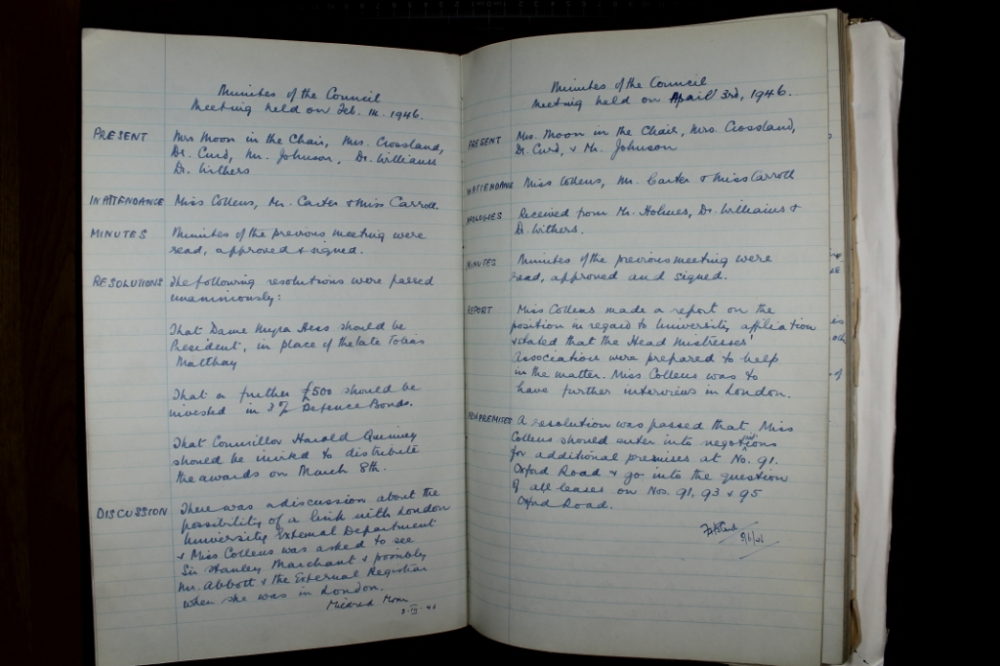 Minutes of the Council
Meeting held on Feb. 14. 1946.
PRESENT Mrs Moon in the Chair, Mrs. Crossland,
Dr. Curd, Mr. Johnson, Dr. Williams
Dr. Withers
IN ATTENDANCE Miss Collens, Mr. Carter & Miss Carroll
MINUTES Minutes of the previous meeting were
read, approved & signed.
RESOLUTIONS The following resolutions were passed
unanimously:
That Dame Myra Hess should be
President, in place of the late Tobias
Matthay
That a further £500 should be
invested in 3% Defence Bonds.
That Councillor Harold Quinney
should be invited to distribute
the awards on March 8th.
DISCUSSION There was a discussion about the
possibility of a link with London
University External Department
& Miss Collens was asked to see
Sir Stanley Marchant & possibly
Mr. Abbott & the External Registrar
when she was in London.
Mildred Moon
Minutes of the Council
Meeting held on April 3rd, 1946.
PRESENT Mrs. Moon in the Chair, Mrs. Crossland,
Dr. Curd, & Mr. Johnson
IN ATTENDANCE Miss Collens, Mr. Carter & Miss Carroll
APOLOGIES Received from Mr. Holmes, Dr. Williams &
Dr. Withers.
MINUTES Minutes of the previous meeting were
read, approved and signed.
REPORT Miss Collens made a report on the
position in regard to University affiliation
& stated that the Head Mistresses'
Association were prepared to help
in the matter. Miss Collens was to
have further interviews in London.
NEW PREMISES A resolution was passed that Miss
Collens should enter into negotiations
for additional premises at No. 91.
Oxford Road & go into the question
of all leases on Nos. 91, 93 & 95
Oxford Road.